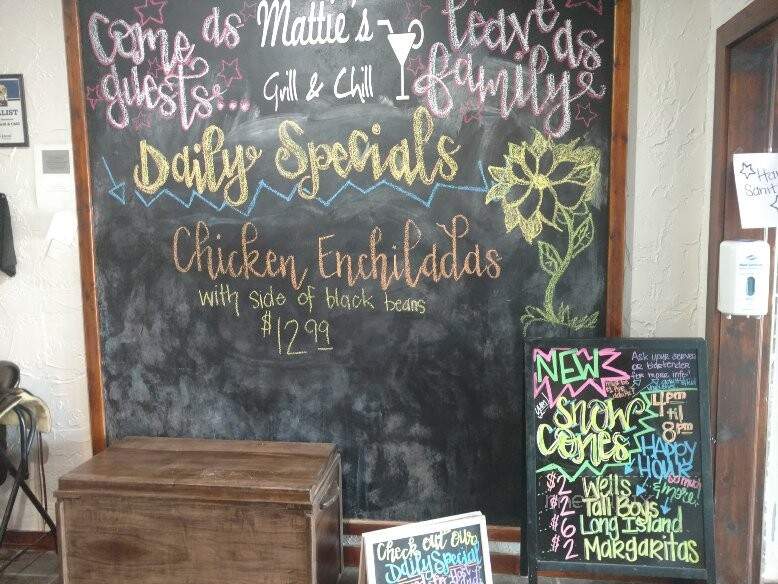 Come as
guests...
Mattie's
Grill & Chill
leave as
family
Daily Specials
Chicken Enchiladas
with side of black beans
$12.99
LIST
Han
Sanit
NEW
Ask your server
or bartender
for more info!
yes!
Snow
Cones
4pm
til
8pm
HAPPY
HOUR
so much
& more!
$2 Wells
$2 Tall Boys
$6 Long Island
$2 MARGARITAS
Check out our
Daily Special